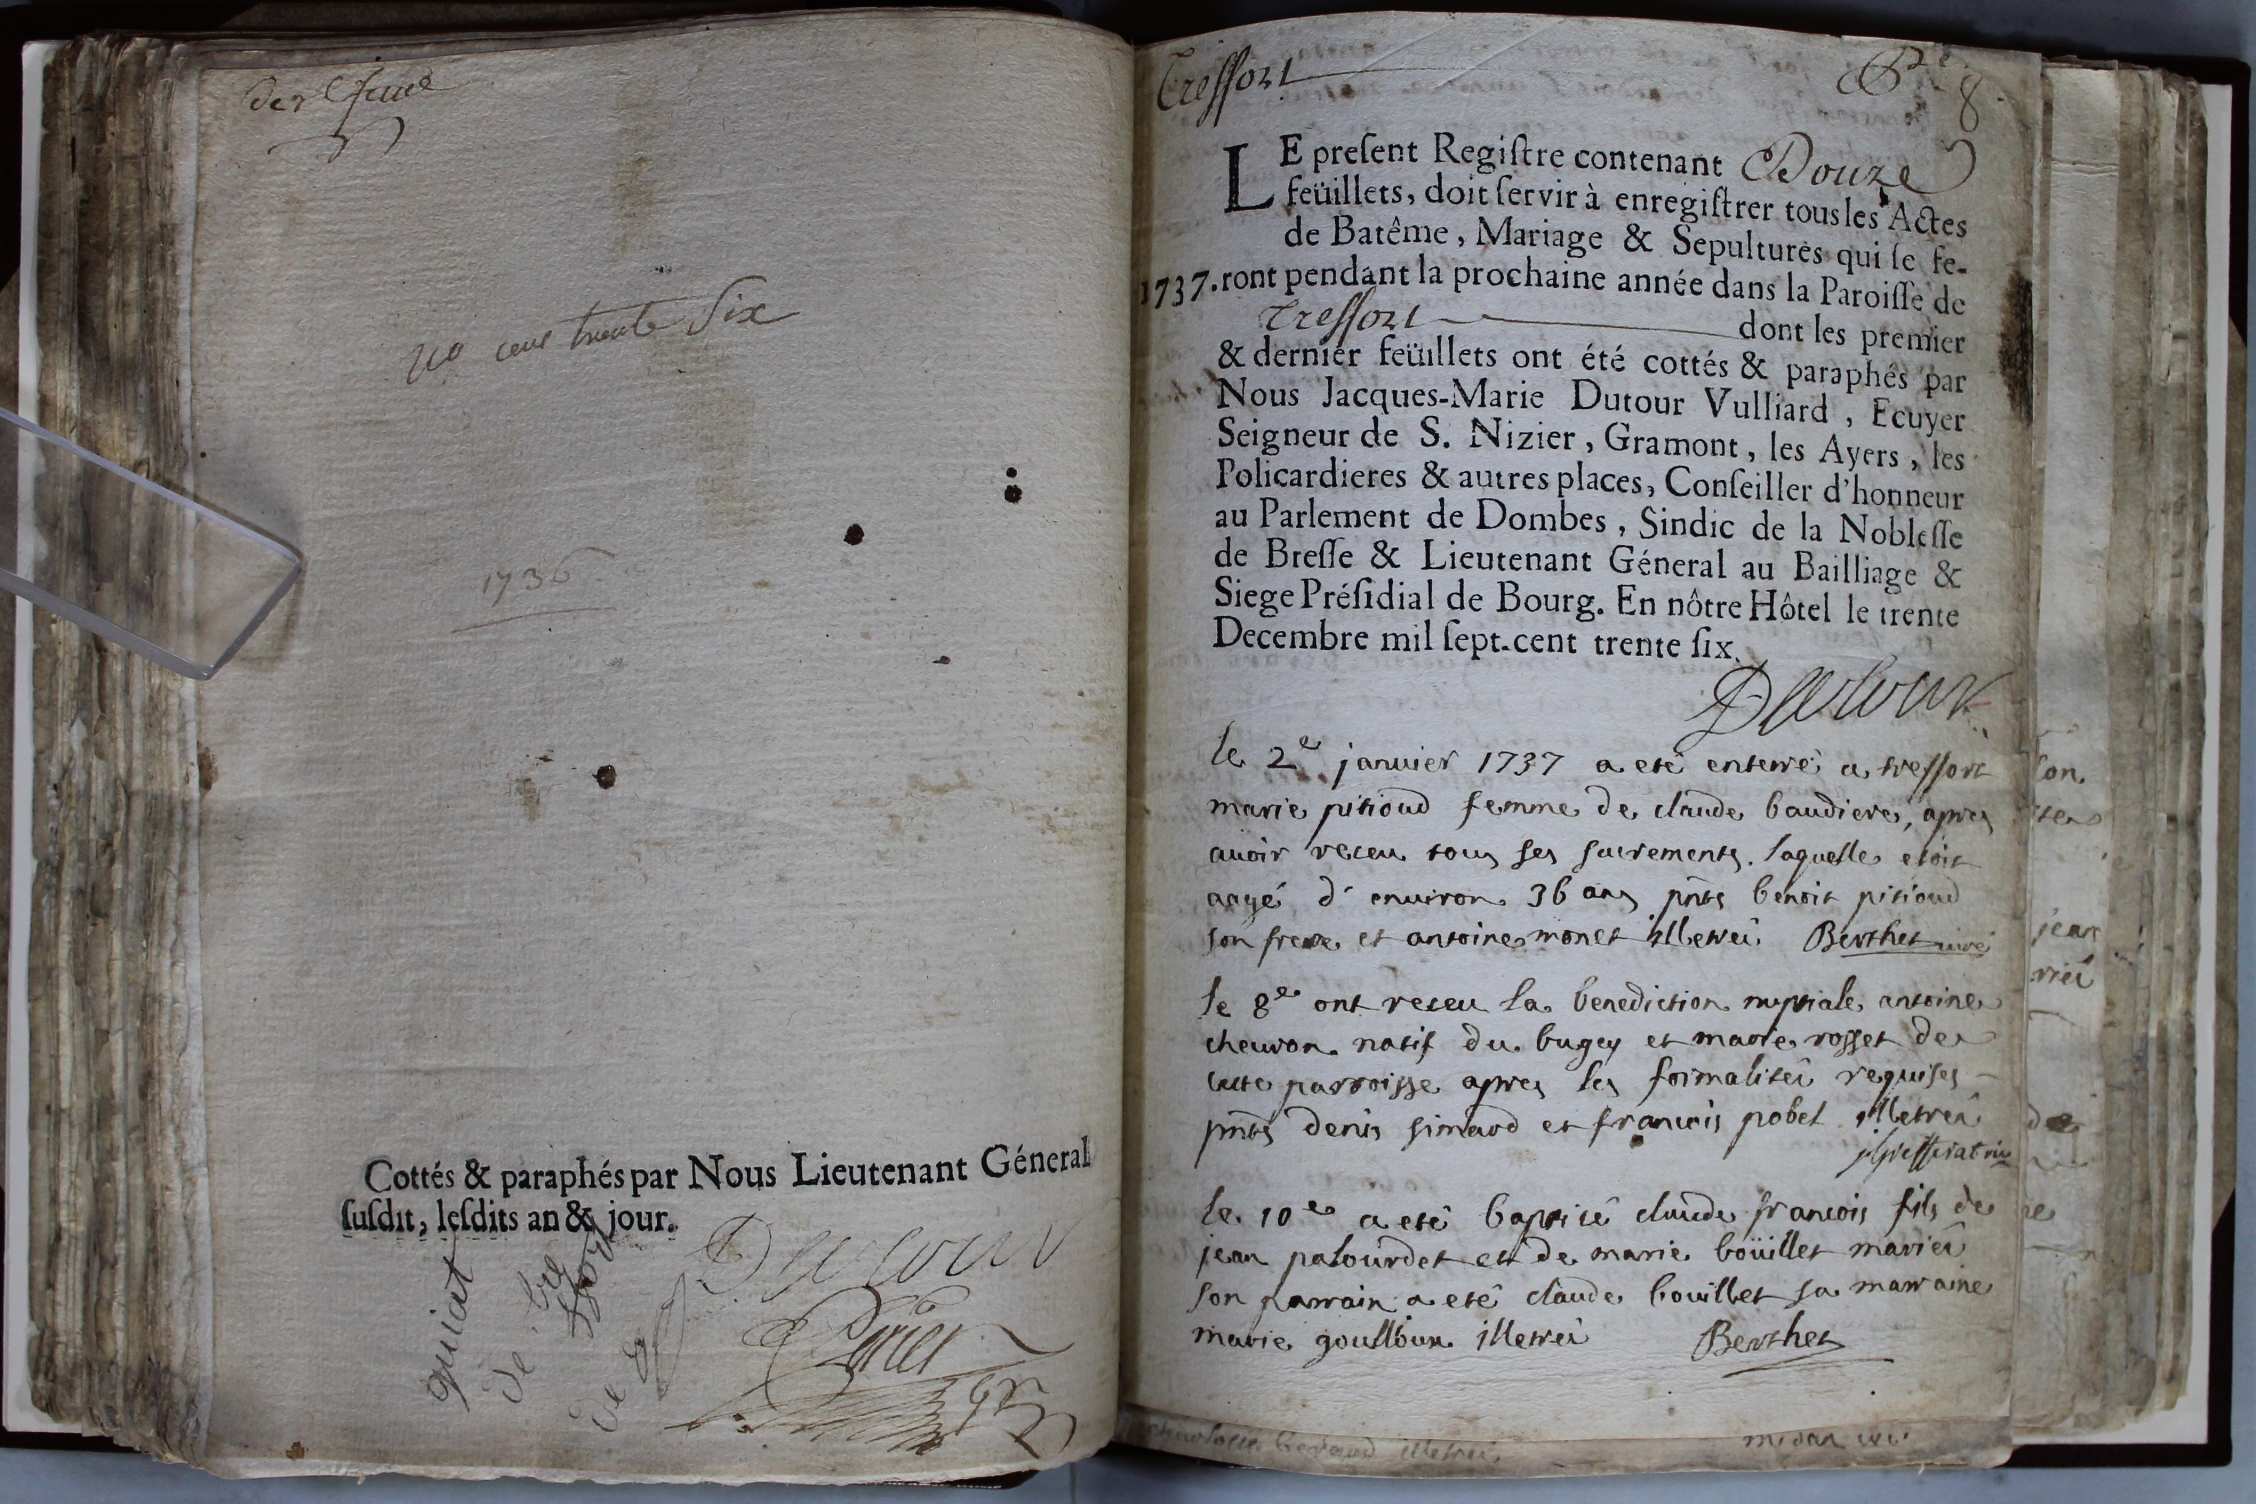 der
cent trente six
1736
Cottés & paraphés par Nous Lieutenant Géneral
ſuſdit, leſdits an & jour.
Dutour
quiat
de
de
Treffort
8
LE preſent Regiſtre contenant Douze
feüillets, doit ſervir à enregiſtrer tous les Actes
de Batême, Mariage & Sepultures qui ſe fe-
1737. ront pendant la prochaine année dans la Paroiſſe de
Treffort dont les premier
& dernier feüillets ont été cottés & paraphés par
Nous Jacques-Marie Dutour Vulliard, Ecuyer
Seigneur de S. Nizier, Gramont, les Ayers, les
Policardieres & autres places, Conſeiller d'honneur
au Parlement de Dombes, Sindic de la Nobleſſe
de Breſſe & Lieutenant Géneral au Bailliage &
Siege Préſidial de Bourg. En nôtre Hôtel le trente
Decembre mil ſept-cent trente ſix.
Dutour
le 2e janvier 1737 a eté enterré a treffort
marie pitioud femme de claude baudiere, apres
avoir receu tous ses sacrements. laquelle etoit
aagé d'environ 36 ans pnts benoit pitioud
son frere et antoine monet illetreˆ Berthet curé
le 8e ont receu la benediction nuptiale antoine
chevron natif du bugey et marie rosset de
cette parroisse apres les formalités requises
pnts denis simard et francois pobel illetreˆ
le 10e a eté baptisé claude francois fils de
jean palourdet et de marie boüillet mariés
son parrain a eté claude bouillet sa marraine
marie goullour illetreˆ Berthet
illetreˆ